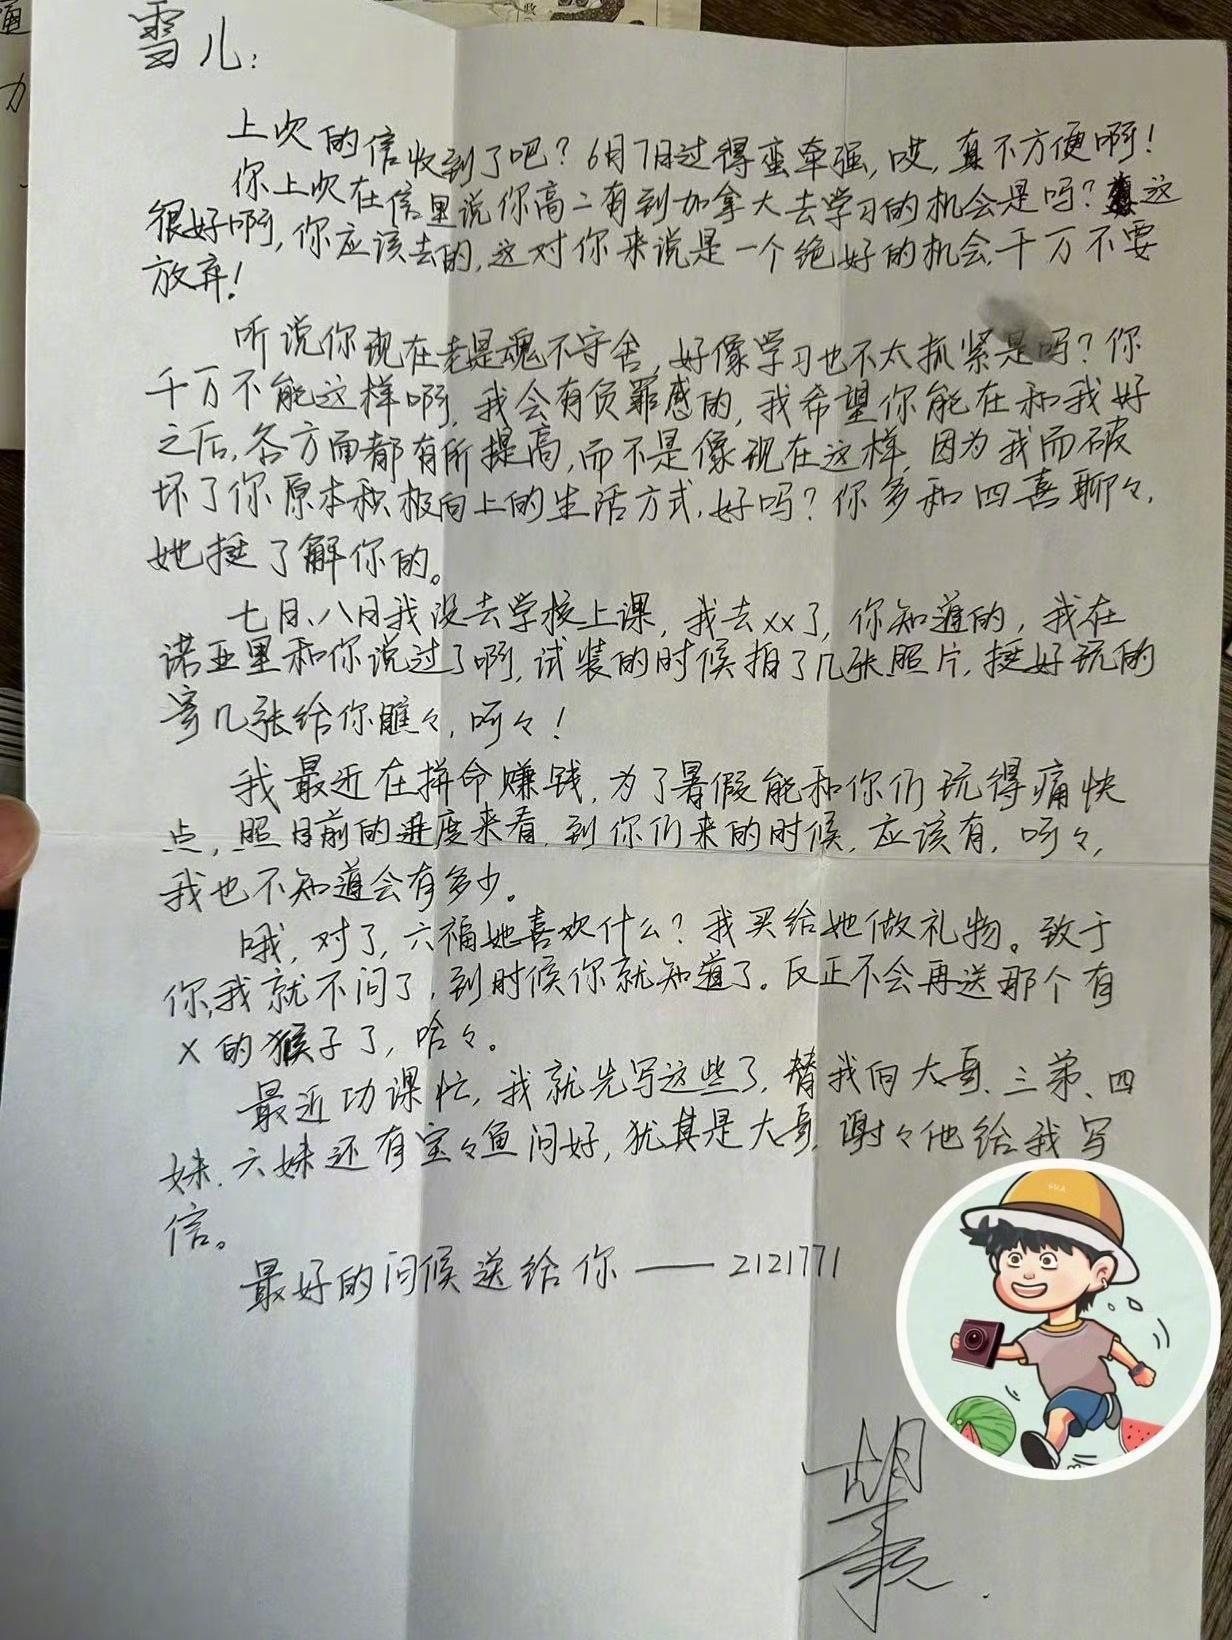 雪儿:
上次的信收到了吧？6月7日过得蛮牵强,哎,真不方便啊！
你上次在信里说你高二有到加拿大去学习的机会是吗？这
很好啊,你应该去的,这对你来说是一个绝好的机会,千万不要
放弃！
听说你现在老是魂不守舍,好像学习也不太抓紧是吗？你
千万不能这样啊,我会有负罪感的,我希望你能在和我好
之后,各方面都有所提高,而不是像现在这样,因为我而破
坏了你原本积极向上的生活方式,好吗？你多和四喜聊々,
她挺了解你的。
七月、八月我没去学校上课,我去xx了,你知道的,我在
诺亚里和你说过了啊,试装的时候拍了几张照片,挺好玩的
寄几张给你瞧々,呵々！
我最近在拼命赚钱,为了暑假能和你们玩得痛快
点,照目前的进度来看,到你们来的时候,应该有,呵々,
我也不知道会有多少。
哦,对了,六福她喜欢什么？我买给她做礼物。致于
你,我就不问了,到时候你就知道了。反正不会再送那个有
X的猴子了,哈々。
最近功课忙,我就先写这些了,替我向大哥、三弟、四
妹、六妹还有宝々鱼问好,犹其是大哥,谢々他给我写
信。
最好的问候送给你——2121771
胡